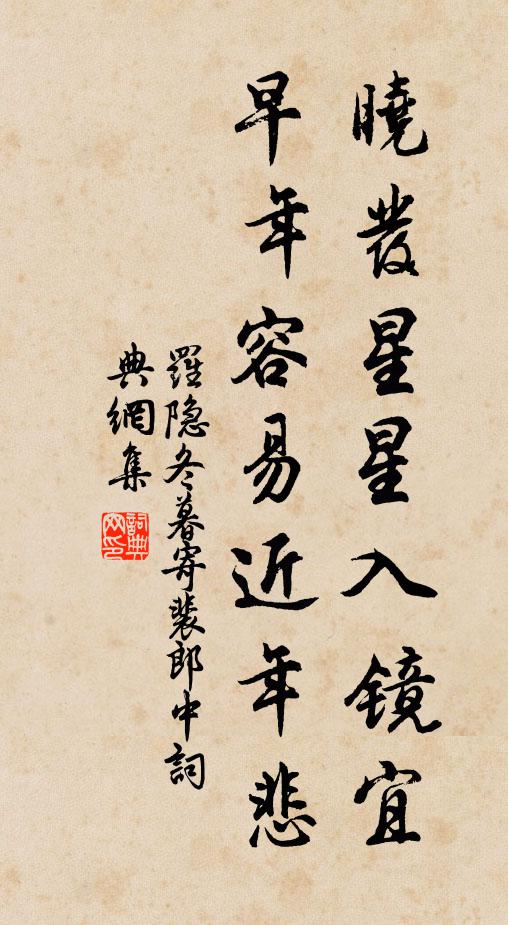 曉發星星入镜宜
早年容易近年悲
羅隐冬暮寄裴郎中詞
典網集
詞典
网印